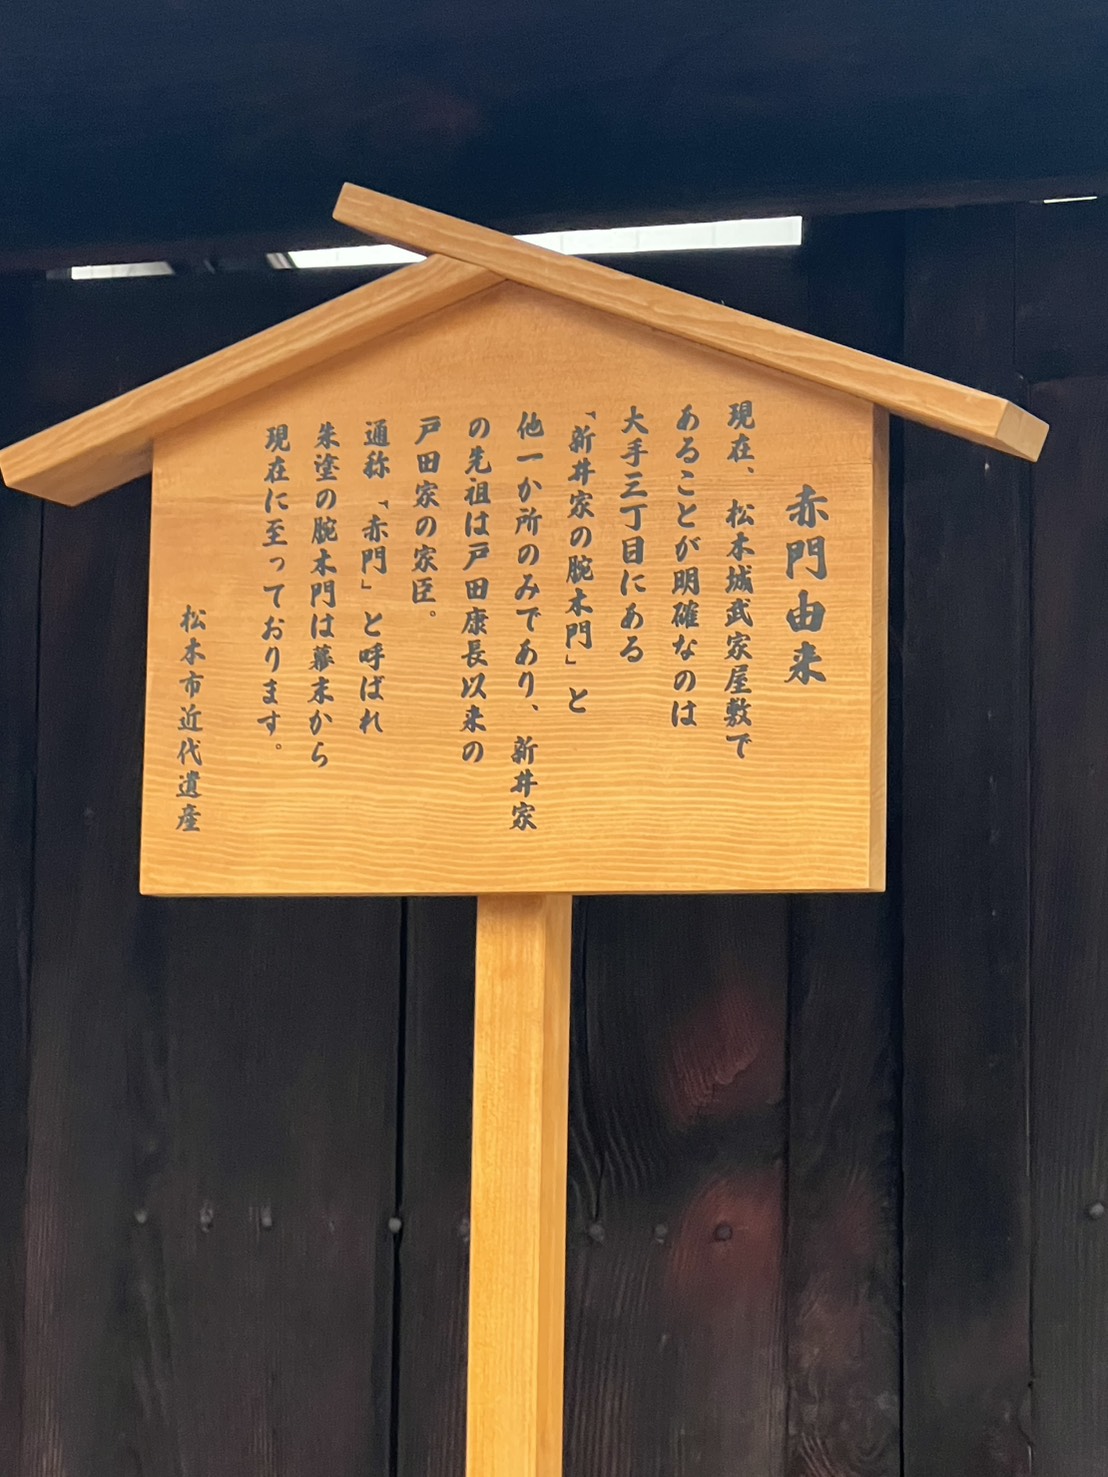 赤門由来
現在、松本城武家屋敷で
あることが明確なのは
大手三丁目にある
「新井家の腕木門」と
他一か所のみであり、新井家
の先祖は戸田康長以来の
戸田家の家臣。
通称「赤門」と呼ばれ
朱塗の腕木門は幕末から
現在に至っております。
松本市近代遺産